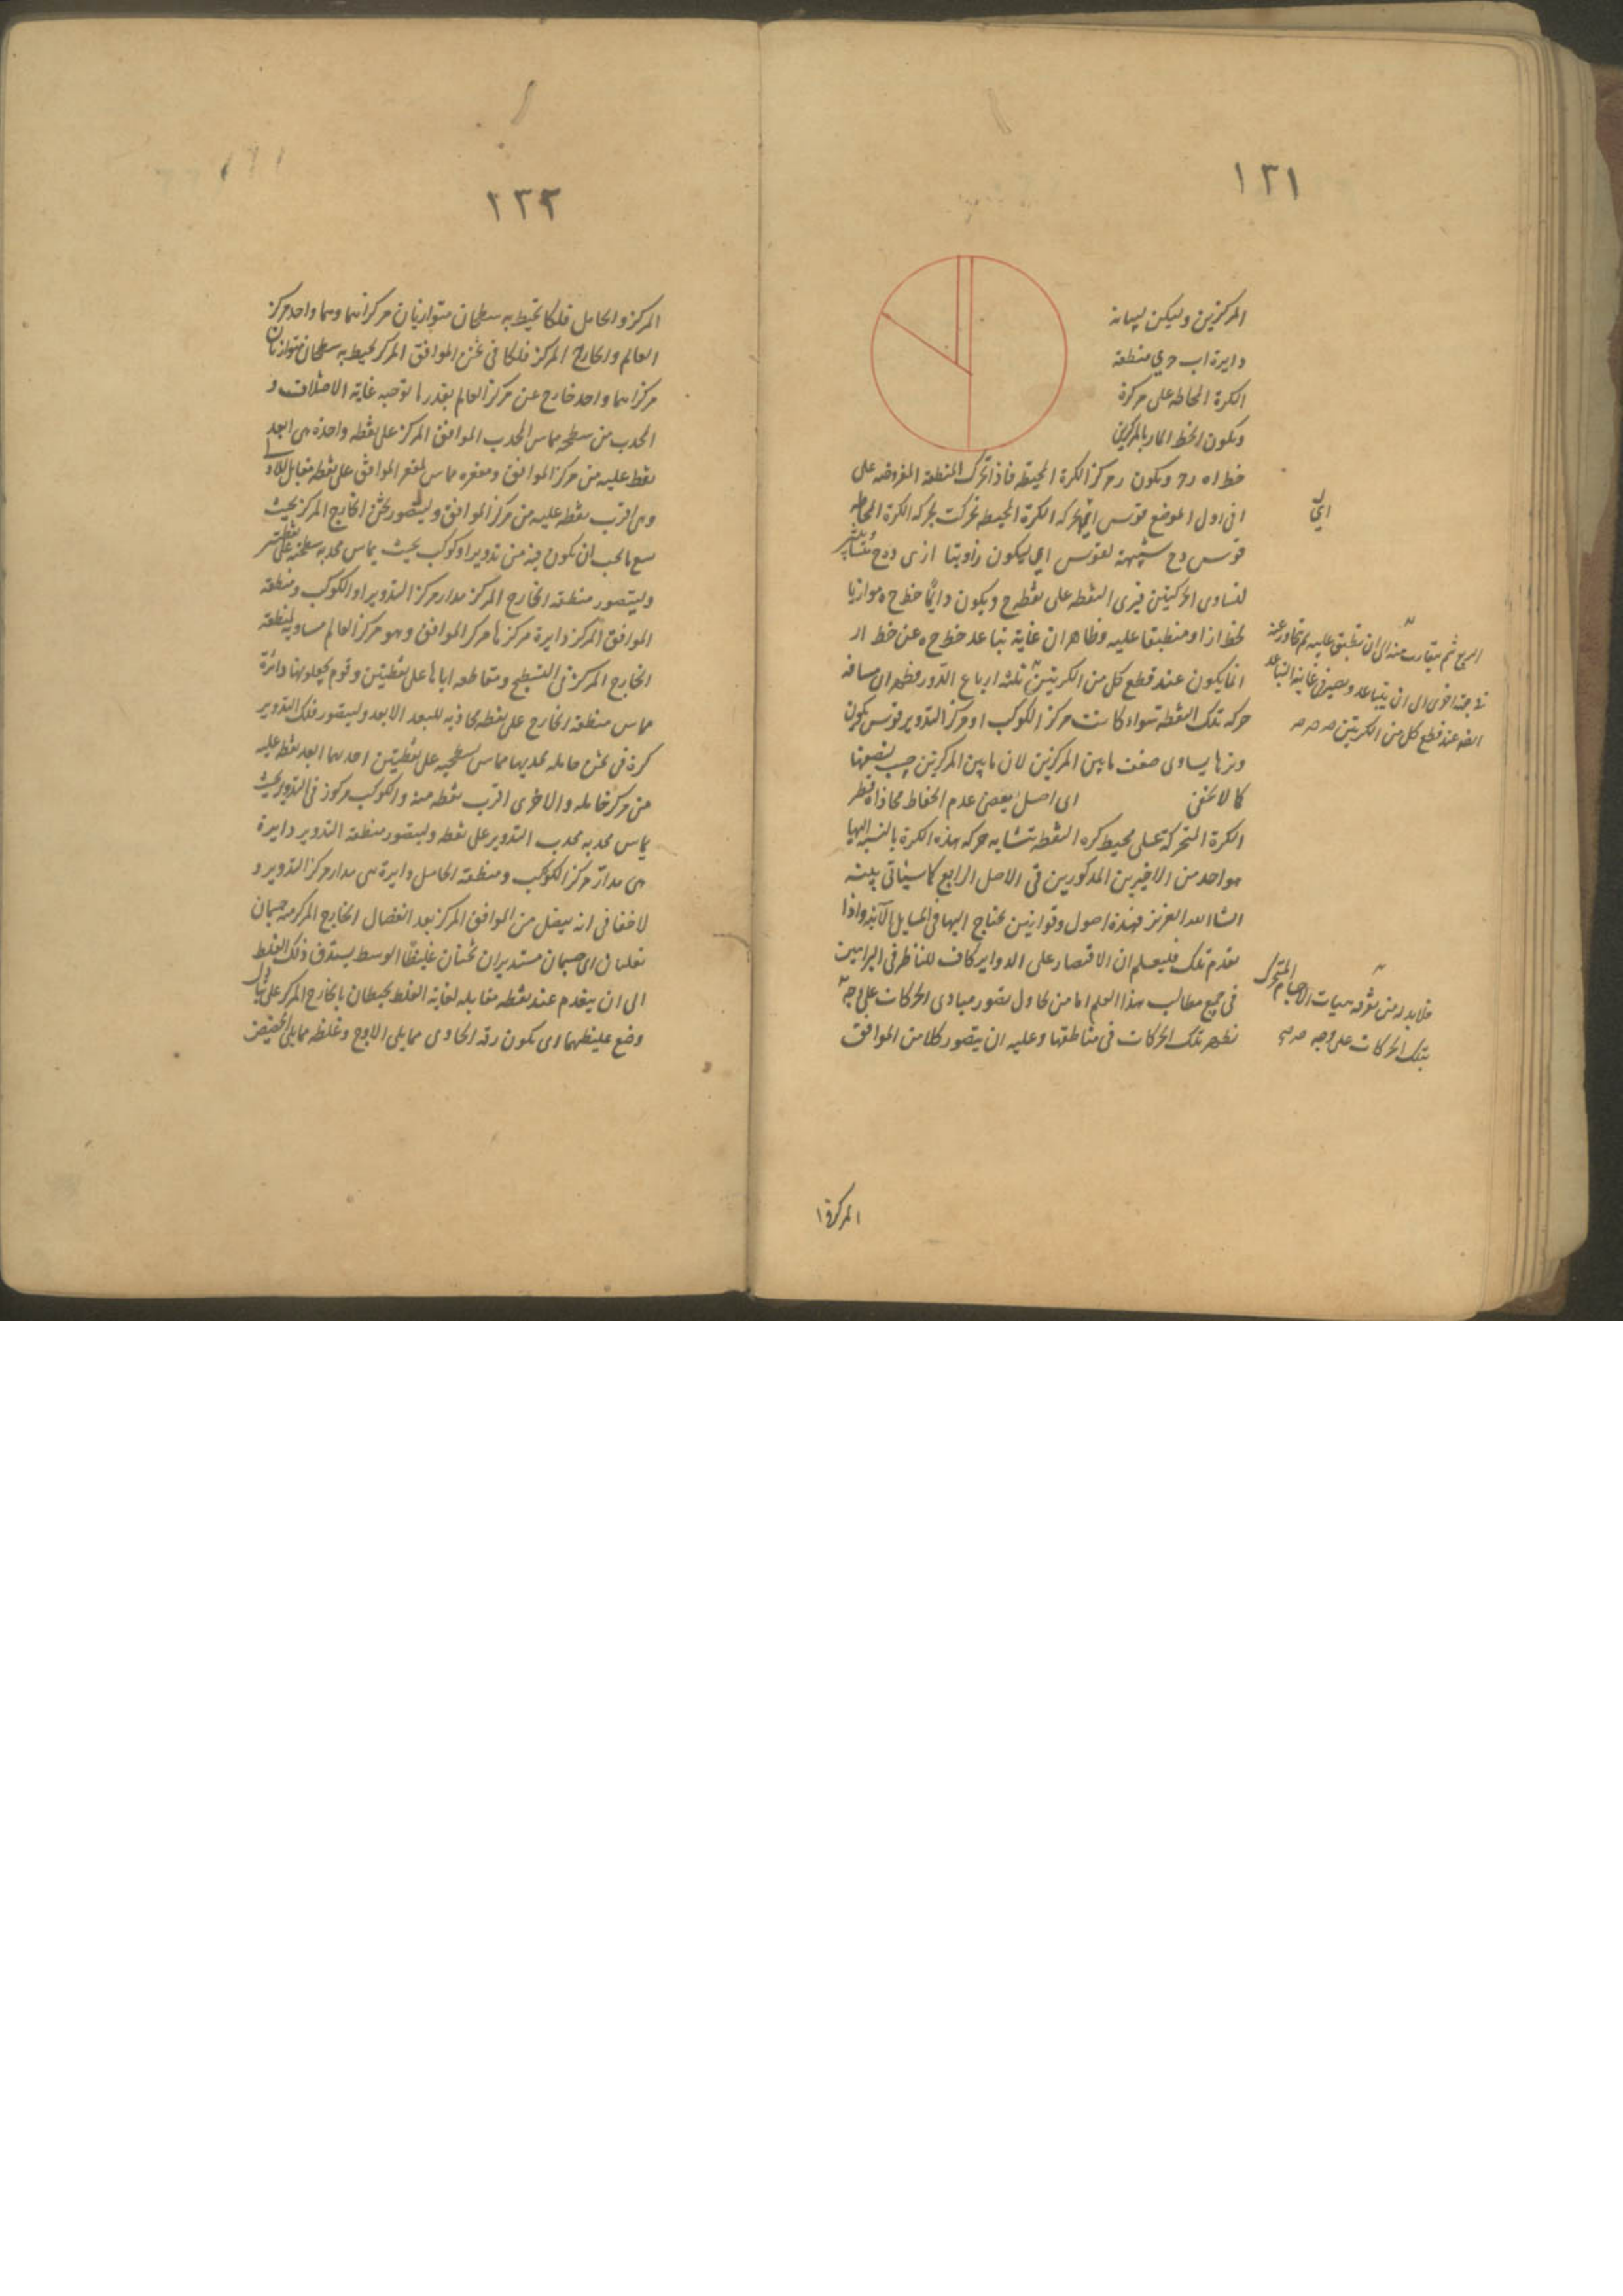 ١٢١
المركزين وليكن لبيانه
دايرة اب ح ي منطقة
الكرة المحاطه على مركزه
ويكون الخط المار بالمركزين
خط اه رح ويكون ر مركز الكرة المحيطة فاذا تحرك المنطقة المفروضه على
افى اول الموضع قوس اي بحركه الكرة المحيطه تحركت بحركه الكرة المحاطه
قوس دح شبيهة لقوس اي ليكون زاويتا ازى دهح متشابهتين
لتساوى الحركتين فيرى النقطه على نقطه ح ويكون دايما خط ح ه موازيا
لخط از او منطبقا عليه وظاهر ان غاية تباعد خط ح ه عن خط از
انما يكون عند قطع كل من الكريتين ثلثه ارباع الدور فظهر ان مسافه
حركه تلك النقطه سواء كانت مركز الكوكب او مركز التدوير قوس يكون
وترها يساوى ضعف مابين المركزين لان مابين المركزين جيب لنصفها
كما لا يخفى اى اصل يقتضى عدم انحفاظ محاذاة قطر
الكرة المتحركة على محيط كره النقطه تشابه حركه هذه الكرة بالنسبه اليها
هو احد من الاخيرين المذكورين فى الاصل الرابع كما سيأتى بيته
انشا الله العزيز فهذه اصول وقوانين نحتاج اليها فى المسايل الآتيه واذا
تقدم تلك فليعلم ان الاقتصار على الدواير كاف للناظر فى البراهين
فى جميع مطالب هذا العلم اما من يحاول تصور مبادى الحركات على وجه
تظهر تلك الحركات فى مناطقها وعليه ان يتصور كلا من الموافق
اي
الربع ثم يتقارب منه الى ان ينطبق عليه ثم يتجاوز عنه
الى جهة اخرى الى ان يتباعد ويصير فى غاية التباعد
ايضا عند قطع كل من الكريتين صح
فلا بد له من معرفه هيات الاجسام المتحرك
بتلك الحركات على وجه صح
المركز وا
١٢٢
المركز والحامل فلكا يحيط به سطحان متوازيان مركزاهما وهما واحد مركز
العالم والخارج المركز فلكا فى ثخن الموافق المركز يحيط به سطحان متوازيان
مركزاهما واحد خارج عن مركز العالم بقدر ما توجبه غاية الاختلاف و
المحدب من سطحيه يماس المحدب الموافق المركز على نقطه واحدة هى ابعد
نقط عليه من مركز الموافق ومقعره يماس لمقعر الموافق على نقطه مقابل للاولى
وهى اقرب نقطه عليه من مركز الموافق وليتصور ثخن الخارج المركز بحيث
يسع ما يجب ان يكون فيه من تدوير او كوكب بحيث يماس محدبه سطحيه على نقطتين
وليتصور منطقه الخارج المركز مدار مركز التدوير او الكوكب ومنطقه
الموافق المركز دايرة مركزها مركز الموافق وهو مركز العالم مساويه لمنطقه
الخارج المركز فى التسطيح ومتقاطعه اياها على نقطتين وقوم يجعلونها دائرة
يماس منطقه الخارج على نقطه محاذيه للبعد الابعد وليتصور فلك التدوير
كرة فى ثخن حامله محدبها مماس لسطحيه على نقطتين احديهما ابعد نقطه عليه
من مركز حامله والاخرى اقرب نقطه منه والكوكب مركوز فى التدوير بحيث
يماس محدبه محدب التدوير على نقطه وليتصور منطقه التدوير دايرة
هى مدار مركز الكوكب ومنطقه الحامل دايرة هى مدار مركز التدوير و
لا خفا فى انه يفضل من الموافق المركز بعد انفصال الخارج المركز منه جسمان
تعليمان اى جسمان مستديران ثخينان غليظا الوسط يستدق ذلك الغلظ
الى ان ينعدم عند نقطه مقابله لغاية الغلظ يحيطان بالخارج المركز على تبادل
وضع غليظهما اى يكون رقه الحاوى مما يلى الاوج وغلظه مما يلى الحضيض